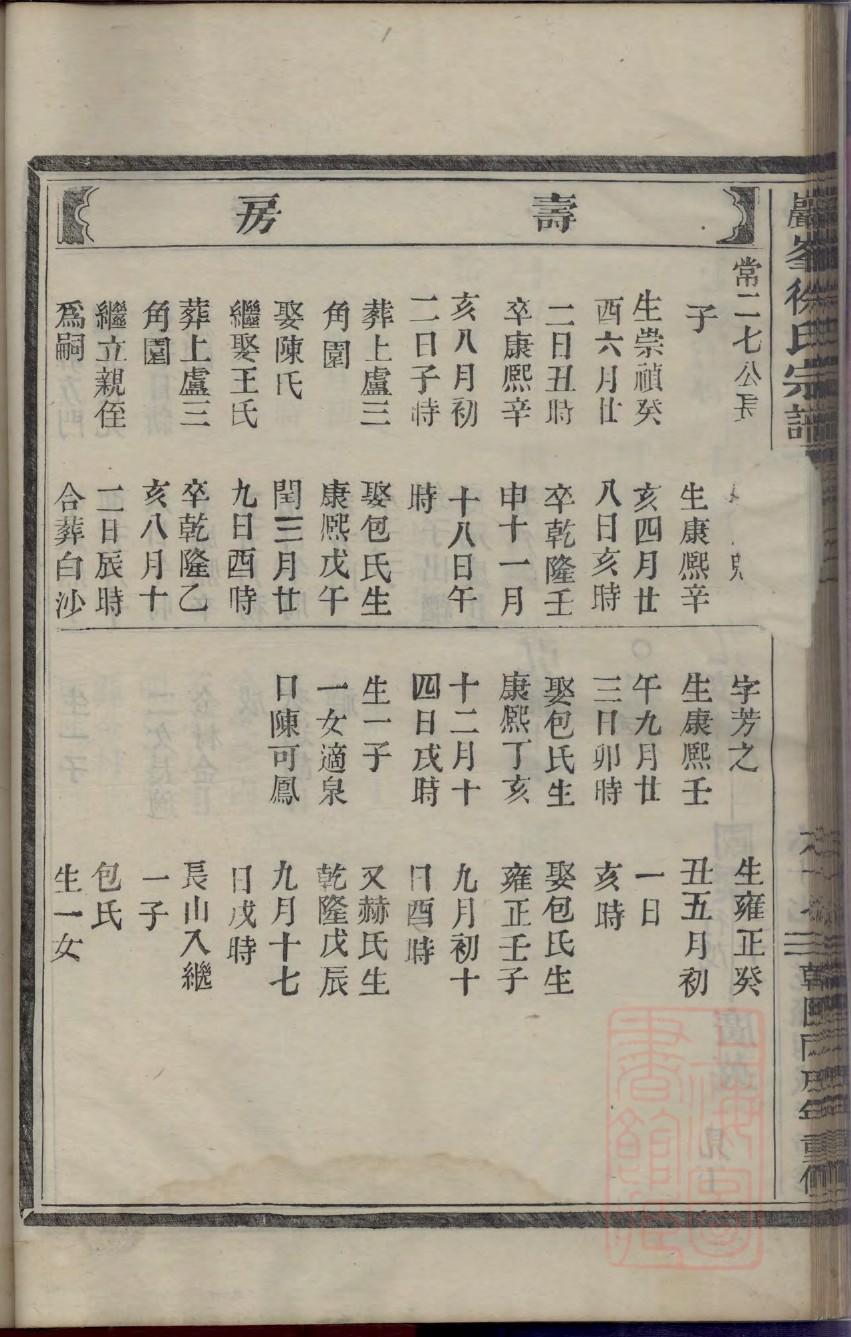 巖峯徐氏宗譜
壽房
常二七公長
子
生崇禎癸
酉六月廿
二日丑時
卒康熙辛
亥八月初
二日子時
葬上盧三
角園
娶陳氏
繼娶王氏
葬上盧三
角園
繼立親侄
爲嗣
生康熙辛
亥四月廿
八日亥時
卒乾隆壬
申十一月
十八日午
時
娶包氏生
康熙戊午
閏三月廿
九日酉時
卒乾隆乙
亥八月十
二日辰時
合葬白沙
字芳之
生康熙壬
午九月廿
三日卯時
娶包氏生
康熙丁亥
十二月十
四日戌時
生一子
一女適泉
口陳可鳳
生雍正癸
丑五月初
一日
亥時
娶包氏生
雍正壬子
九月初十
日酉時
又赫氏生
乾隆戊辰
九月十七
日戌時
長山入繼
一子
包氏
生一女